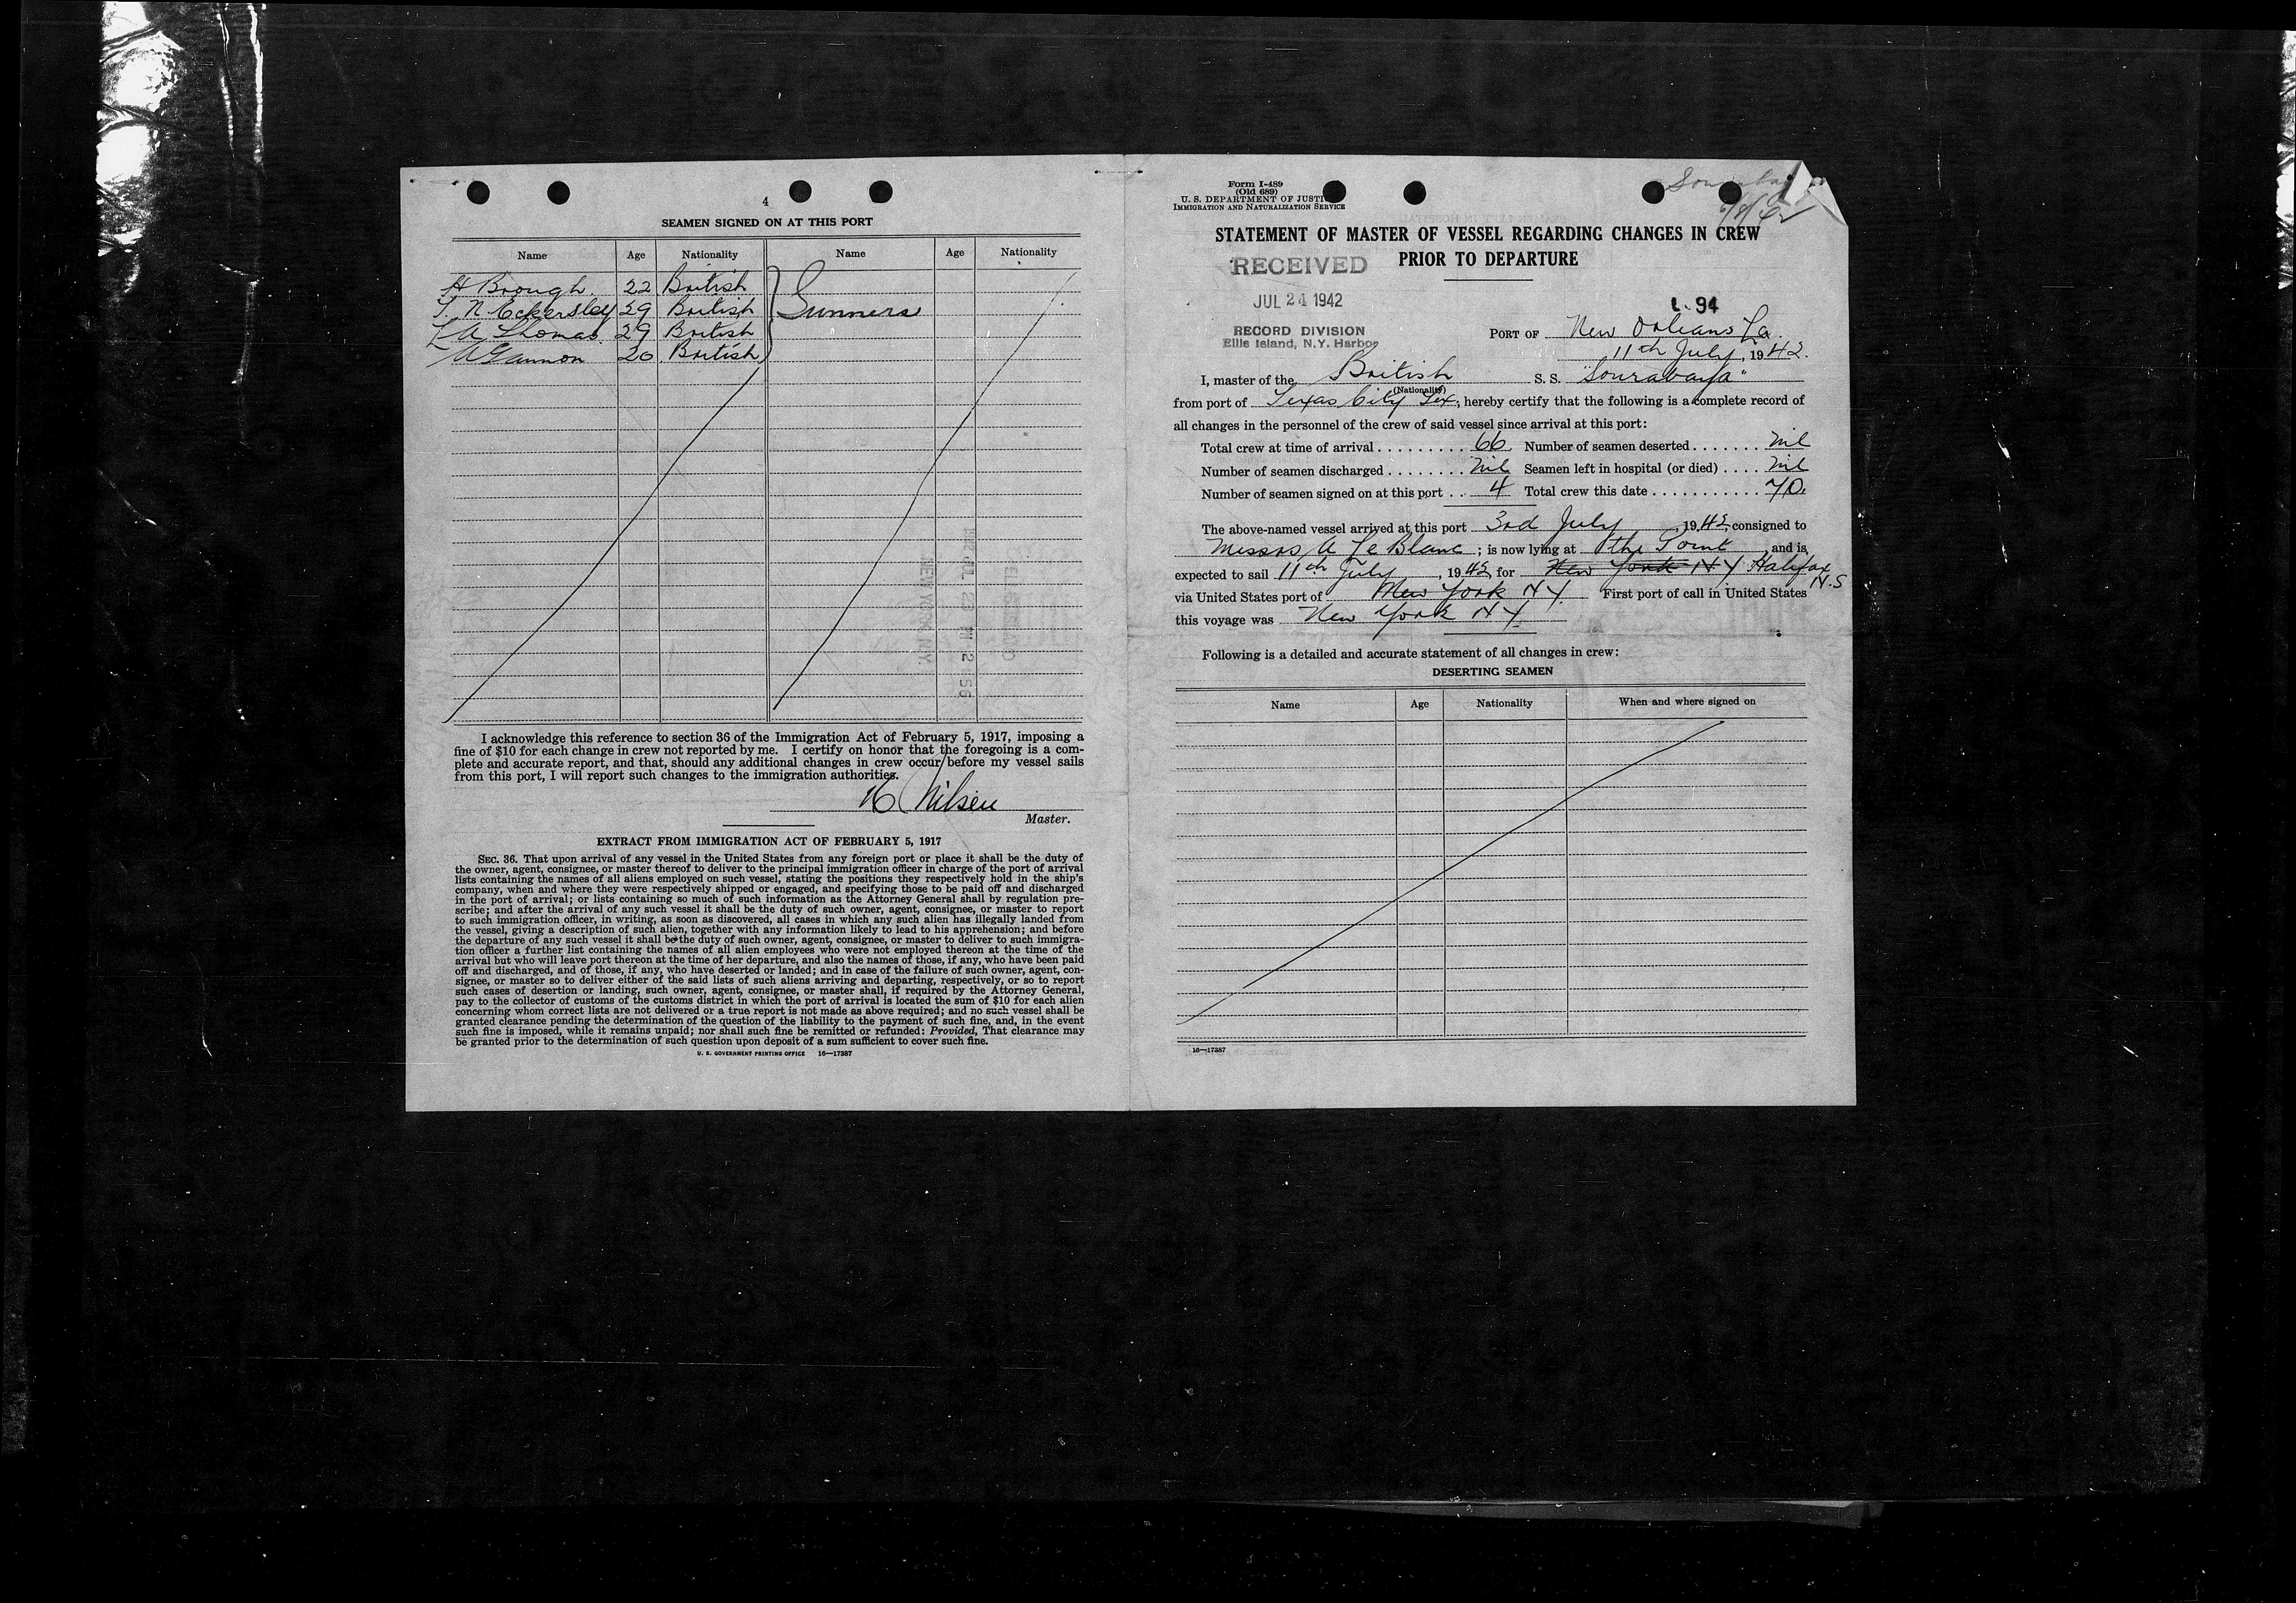 4
SEAMEN SIGNED ON AT THIS PORT
Name Age Nationality Name Age Nationality
H Brough 22 British
T. N Eckersley 29 British Gunners
L A Thomas 29 British
A Gannon 20 British
I acknowledge this reference to section 36 of the Immigration Act of February 5, 1917, imposing a
fine of $10 for each change in crew not reported by me. I certify on honor that the foregoing is a com-
plete and accurate report, and that, should any additional changes in crew occur before my vessel sails
from this port, I will report such changes to the immigration authorities.
Nilsen
Master.
EXTRACT FROM IMMIGRATION ACT OF FEBRUARY 5, 1917
SEC. 36. That upon arrival of any vessel in the United States from any foreign port or place it shall be the duty of
the owner, agent, consignee, or master thereof to deliver to the principal immigration officer in charge of the port of arrival
lists containing the names of all aliens employed on such vessel, stating the positions they respectively hold in the ship's
company, when and where they were respectively shipped or engaged, and specifying those to be paid off and discharged
in the port of arrival; or lists containing so much of such information as the Attorney General shall by regulation pre-
scribe; and after the arrival of any such vessel it shall be the duty of such owner, agent, consignee, or master to report
to such immigration officer, in writing, as soon as discovered, all cases in which any such alien has illegally landed from
the vessel, giving a description of such alien, together with any information likely to lead to his apprehension; and before
the departure of any such vessel it shall be the duty of such owner, agent, consignee, or master to deliver to such immigra-
tion officer a further list containing the names of all alien employees who were not employed thereon at the time of the
arrival but who will leave port thereon at the time of her departure, and also the names of those, if any, who have been paid
off and discharged, and of those, if any, who have deserted or landed; and in case of the failure of such owner, agent, con-
signee, or master so to deliver either of the said lists of such aliens arriving and departing, respectively, or so to report
such cases of desertion or landing, such owner, agent, consignee, or master shall, if required by the Attorney General,
pay to the collector of customs of the customs district in which the port of arrival is located the sum of $10 for each alien
concerning whom correct lists are not delivered or a true report is not made as above required; and no such vessel shall be
granted clearance pending the determination of the question of the liability to the payment of such fine, and, in the event
such fine is imposed, while it remains unpaid; nor shall such fine be remitted or refunded: Provided, That clearance may
be granted prior to the determination of such question upon deposit of a sum sufficient to cover such fine.
U. S. GOVERNMENT PRINTING OFFICE 16—17387
Form I-489
(Old 689)
U. S. DEPARTMENT OF JUSTI
IMMIGRATION AND NATURALIZATION SERVICE
STATEMENT OF MASTER OF VESSEL REGARDING CHANGES IN CREW
PRIOR TO DEPARTURE
RECEIVED
JUL 24 1942
RECORD DIVISION
Ellis Island, N.Y. Harbor
L-94
PORT OF New Orleans La.
11th July, 1942.
I, master of the British S. S. "Sourabaya"
(Nationality)
from port of Texas City Tex, hereby certify that the following is a complete record of
all changes in the personnel of the crew of said vessel since arrival at this port:
Total crew at time of arrival . . . . . . . . . 66 Number of seamen deserted . . . . . . . nil
Number of seamen discharged . . . . . . . . nil Seamen left in hospital (or died) . . . . nil
Number of seamen signed on at this port . . 4 Total crew this date . . . . . . . . . . . 70.
The above-named vessel arrived at this port 3rd July, 1942, consigned to
Messrs A Le Blanc ; is now lying at the Point, and is
expected to sail 11th July, 1942, for New York NY Halifax N.S
via United States port of New York NY. First port of call in United States
this voyage was New York NY.
Following is a detailed and accurate statement of all changes in crew:
DESERTING SEAMEN
Name Age Nationality When and where signed on
16—17387